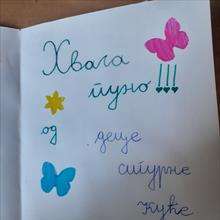 Хвала
пуно!!!
од деце
сигурне
куће